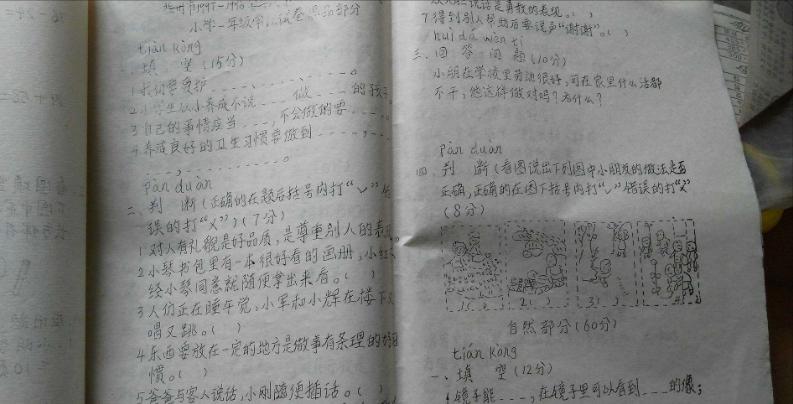 小学一年级
部分
tián kòng
一、填 空 (15分)
1 我们要爱护
2 小学生从小养成不说 做 的孩子
3 自己的事情应当 ，不会做的要
4 养成良好的卫生习惯要做到
pàn duàn
二、判 断 (正确的在题后括号内打“√” 错
误的打“×”) (7分)
1 对人有礼貌是好品质，是尊重别人的表现
2 小琴书包里有一本很好看的画册，小红
经小琴同意就随便拿出来看。( )
3 人们正在睡午觉，小军和小辉在楼下又
唱又跳。( )
4 东西要放在一定的地方是做事有条理的好习
惯。( )
5 爸爸与客人说话，小刚随便插话。( )
7 得到别人帮助后要说声“谢谢”。( )
huí dá wèn tí
三、回 答 问 题 (10分)
小明在学校里劳动很好，可在家里什么活都
不干，他这样做对吗？为什么？
pàn duàn
四、判 断 (看图说出下列图中小朋友的做法是否
正确，正确的在图下括号内打“√” 错误的打“×”
(8分)
2( )
3( )
自然部分 (60分)
tián kòng
一、填 空 (12分)
1 镜子能 ，在镜子里可以看到 的像；